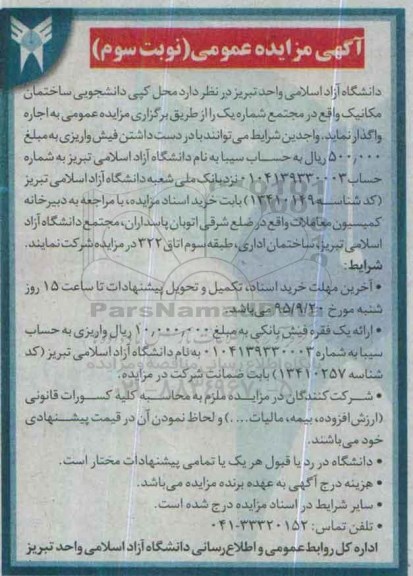 آگهی مزایده عمومی (نوبت سوم)
دانشگاه آزاد اسلامی واحد تبریز در نظر دارد محل کپی دانشجویی ساختمان
مکانیک واقع در مجتمع شماره یک را از طریق برگزاری مزایده عمومی به اجاره
واگذار نماید. واجدین شرایط می توانند با در دست داشتن فیش واریزی به مبلغ
۵۰۰,۰۰۰ ریال به حساب سیبا به نام دانشگاه آزاد اسلامی تبریز به شماره
حساب ۰۱۰۴۱۳۹۳۳۰۰۰۳ نزد بانک ملی شعبه دانشگاه آزاد اسلامی تبریز
(کد شناسه ۱۳۴۱۰۱۴۹) بابت خرید اسناد مزایده، با مراجعه به دبیرخانه
کمیسیون معاملات واقع در ضلع شرقی اتوبان پاسداران، مجتمع دانشگاه آزاد
اسلامی تبریز، ساختمان اداری، طبقه سوم اتاق ۳۲۲ در مزایده شرکت نمایند.
شرایط:
• آخرین مهلت خرید اسناد، تکمیل و تحویل پیشنهادات تا ساعت ۱۵ روز
شنبه مورخ ۹۵/۹/۲۰ می باشد.
• ارائه یک فقره فیش بانکی به مبلغ ۱۰,۰۰۰,۰۰۰ ریال واریزی به حساب
سیبا به شماره ۰۱۰۴۱۳۹۳۳۰۰۰۳ به نام دانشگاه آزاد اسلامی تبریز (کد
شناسه ۱۳۴۱۰۲۵۷) بابت ضمانت شرکت در مزایده.
• شرکت کنندگان در مزایده ملزم به محاسبه کلیه کسورات قانونی
(ارزش افزوده، بیمه، مالیات....) و لحاظ نمودن آن در قیمت پیشنهادی
خود می باشند.
• دانشگاه در رد یا قبول هر یک یا تمامی پیشنهادات مختار است.
• هزینه درج آگهی به عهده برنده مزایده می باشد.
• سایر شرایط در اسناد مزایده درج شده است.
• تلفن تماس: ۳۳۳۲۰۱۵۲-۰۴۱
اداره کل روابط عمومی و اطلاع رسانی دانشگاه آزاد اسلامی واحد تبریز